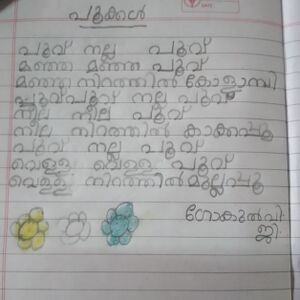 പൂക്കൾ
പൂവ് നല്ല പൂവ്
മഞ്ഞ മഞ്ഞ പൂവ്
മഞ്ഞ നിറത്തിൽ കോളാമ്പി
പൂവ് പൂവ് നല്ല പൂവ്
നീല നീല പൂവ്
നീല നിറത്തിൽ കാക്കപ്പൂ
പൂവ് നല്ല പൂവ്
വെള്ള വെള്ള പൂവ്
വെള്ള നിറത്തിൽ മുല്ലപ്പൂ
ഗോകുൽ വി
ജി